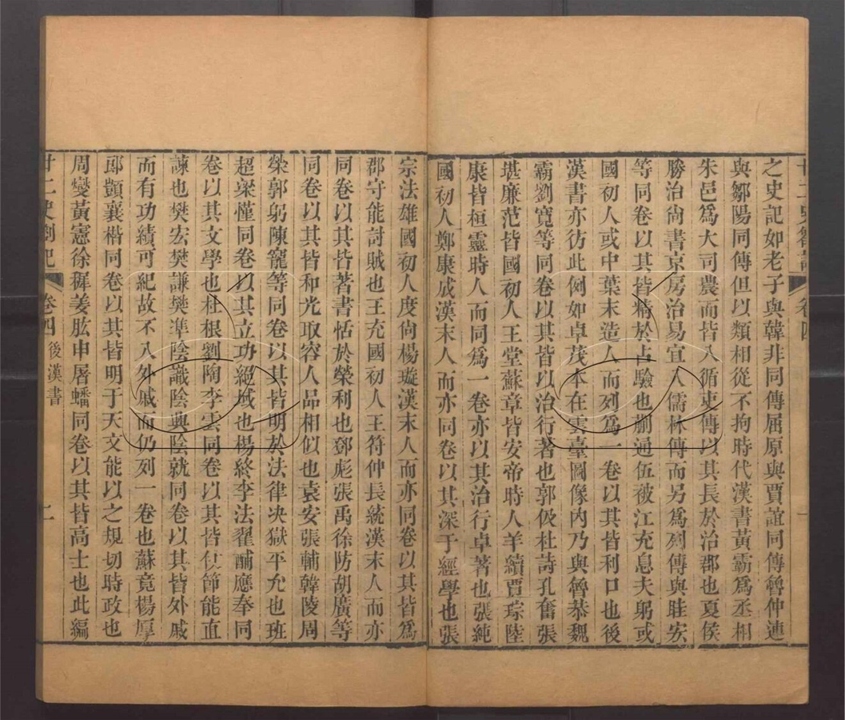 廿二史劄記 卷四
之史記如老子與韓非同傳屈原與賈誼同傳魯仲連
與鄒陽同傳但以類相從不拘時代漢書黃霸為丞相
朱邑為大司農而皆入循吏傳以其長於治郡也夏侯
勝治尚書京房治易宜入儒林傳而另為列傳與眭宏
等同卷以其皆精於占驗也蒯通伍被江充息夫躬或
國初人或中葉末造人而列為一卷以其皆利口也後
漢書亦彷此例如卓茂本在雲臺圖像內乃與魯恭魏
霸劉寬等同卷以其皆以治行著也郭伋杜詩孔奮張
堪廉范皆國初人王堂蘇章皆安帝時人羊續賈琮陸
康皆桓靈時人而同為一卷亦以其治行卓著也張純
國初人鄭康成漢末人而亦同卷以其深于經學也張
宗法雄國初人度尚楊璇漢末人而亦同卷以其皆為
郡守能討賊也王充國初人王符仲長統漢末人而亦
同卷以其皆著書恬於榮利也鄧彪張禹徐防胡廣等
同卷以其皆和光取容人品相似也袁安張酺韓陵周
榮郭躬陳寵等同卷以其皆明於法律决獄平允也班
超梁慬同卷以其立功絕域也楊終李法翟酺應奉同
卷以其文學也杜根劉陶李雲同卷以其皆仗節能直
諫也樊宏樊謙樊準陰識陰興陰就同卷以其皆外戚
而有功績可紀故不入外戚而仍列一卷也蘇竟楊厚
郎顗襄楷同卷以其皆明于天文能以之規切時政也
周燮黃憲徐穉姜肱申屠蟠同卷以其皆高士也此編
廿二史劄記 卷四 後漢書 二